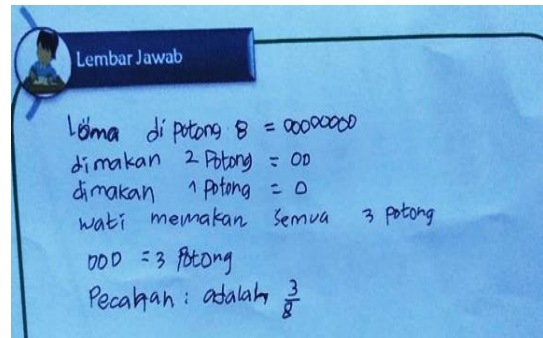 Lembar Jawab
Loma di potong 8 = 00000000
dimakan 2 Potong = 00
dimakan 1 potong = 0
wati memakan semua 3 potong
000 = 3 Potong
Pecahan : adalah 3/8